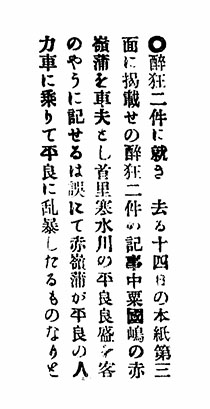 ◯酔狂二件に就き 去る十四日の本紙第三
面に掲載せの酔狂二件の記事中粟國嶋の赤
嶺蒲を車夫とし首里寒水川の平良良盛を客
のやうに記せるは誤にて赤嶺蒲が平良の人
力車に乗りて平良に乱暴したるものなりと